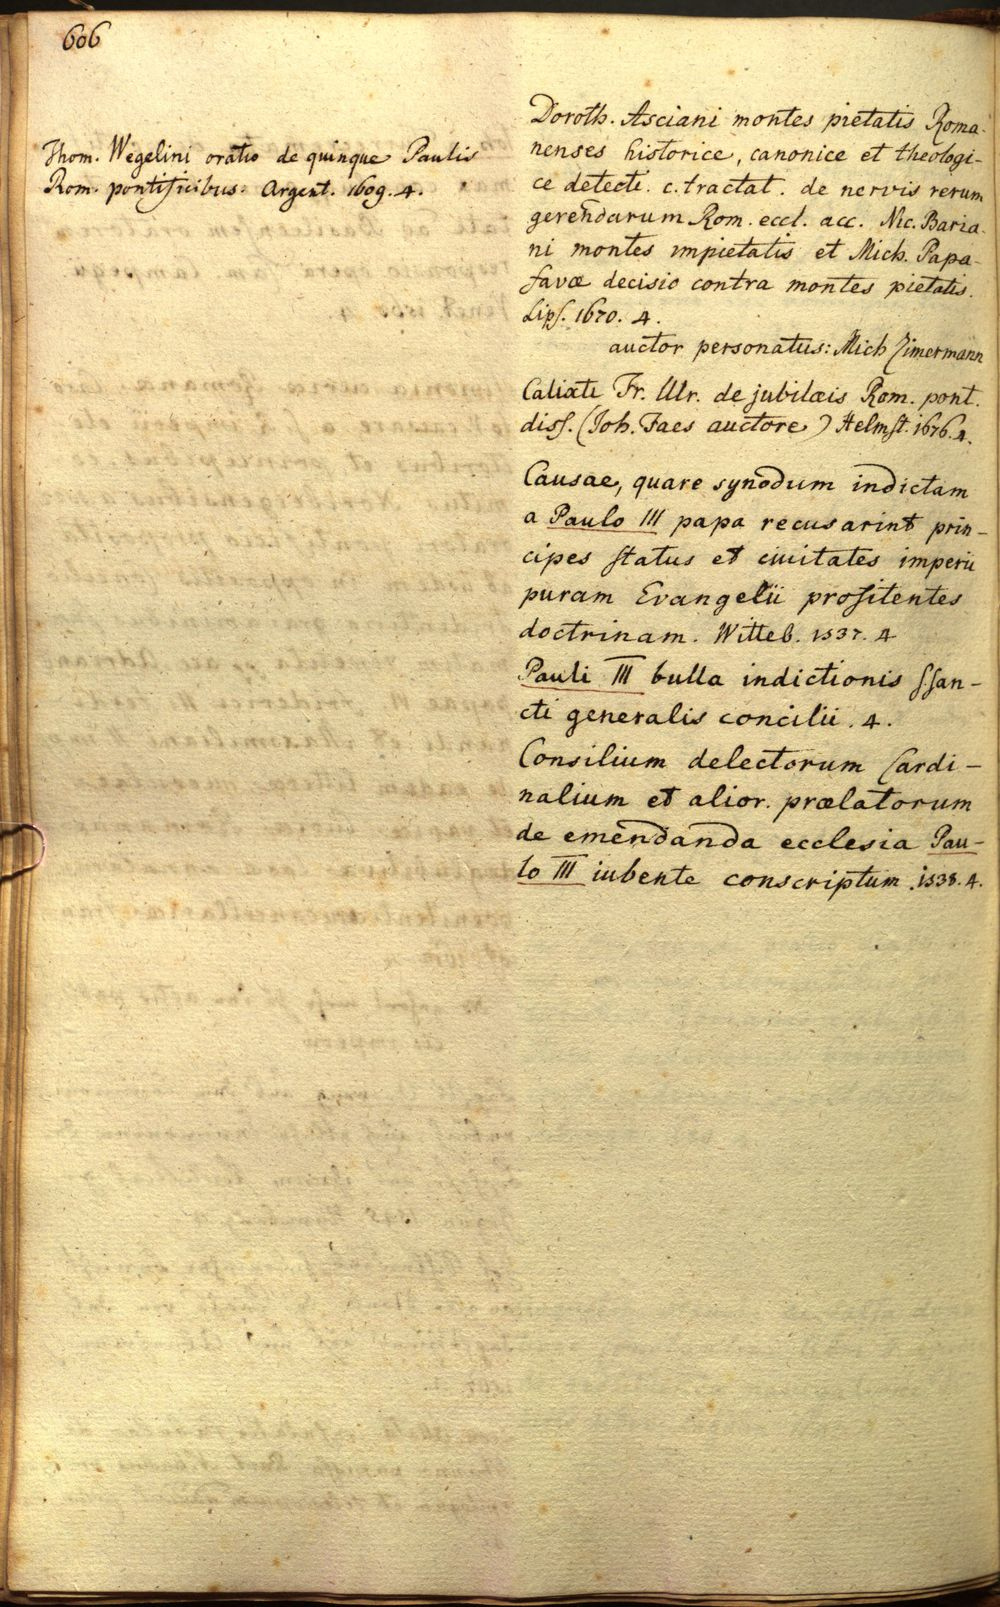 606
Thom. Wegelini oratio de quinque Paulis
Rom. pontificibus. Argent. 1609. 4.
Doroth. Asciani montes pietatis Roma-
nenses historice, canonice et theologi-
ce detecti. c. tractat. de nervis rerum
gerendarum Rom. eccl. acc. Nic. Baria-
ni montes impietatis et Mich. Papa-
favæ decisio contra montes pietatis.
Lips. 1670. 4.
auctor personatus: Mich Zimermann
Calixti Fr. Ulr. de jubilæis Rom. pont.
diss. (Joh. Faes auctore) Helmst. 1676. 4.
Causae, quare synodum indictam
a Paulo III papa recusarint prin-
cipes status et ciuitates imperii
puram Evangelii profitentes
doctrinam. Witteb. 1537. 4
Pauli III bulla indictionis ssan-
cti generalis concilii. 4.
Consilium delectorum Cardi-
nalium et alior. prælatorum
de emendanda ecclesia Pau-
lo III iubente conscriptum. 1538. 4.